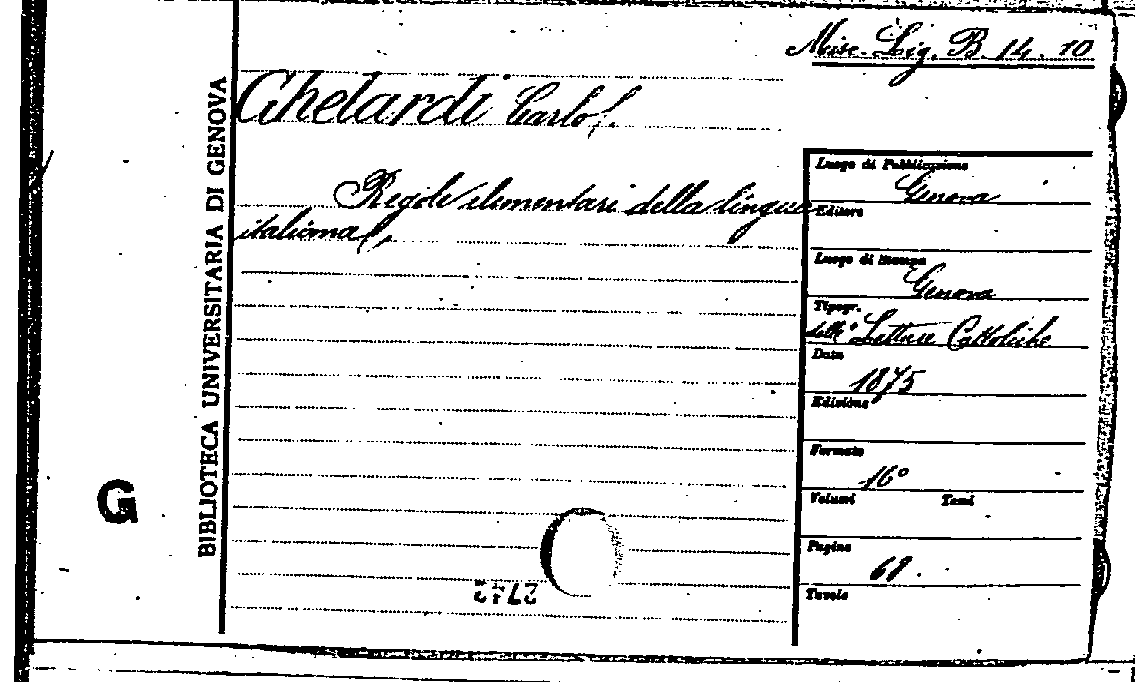 Misc. Lig. B. 14. 10
Ghelardi Carlo.
Regole elementari della lingua
italiana.
BIBLIOTECA UNIVERSITARIA DI GENOVA
G
Luogo di Pubblicazione
Genova
Editore
Luogo di Stampa
Genova
Tipogr.
delle Letture Cattoliche
Data
1875
Edizione
Formato
16°
Volumi Tomi
Pagine
Tavole